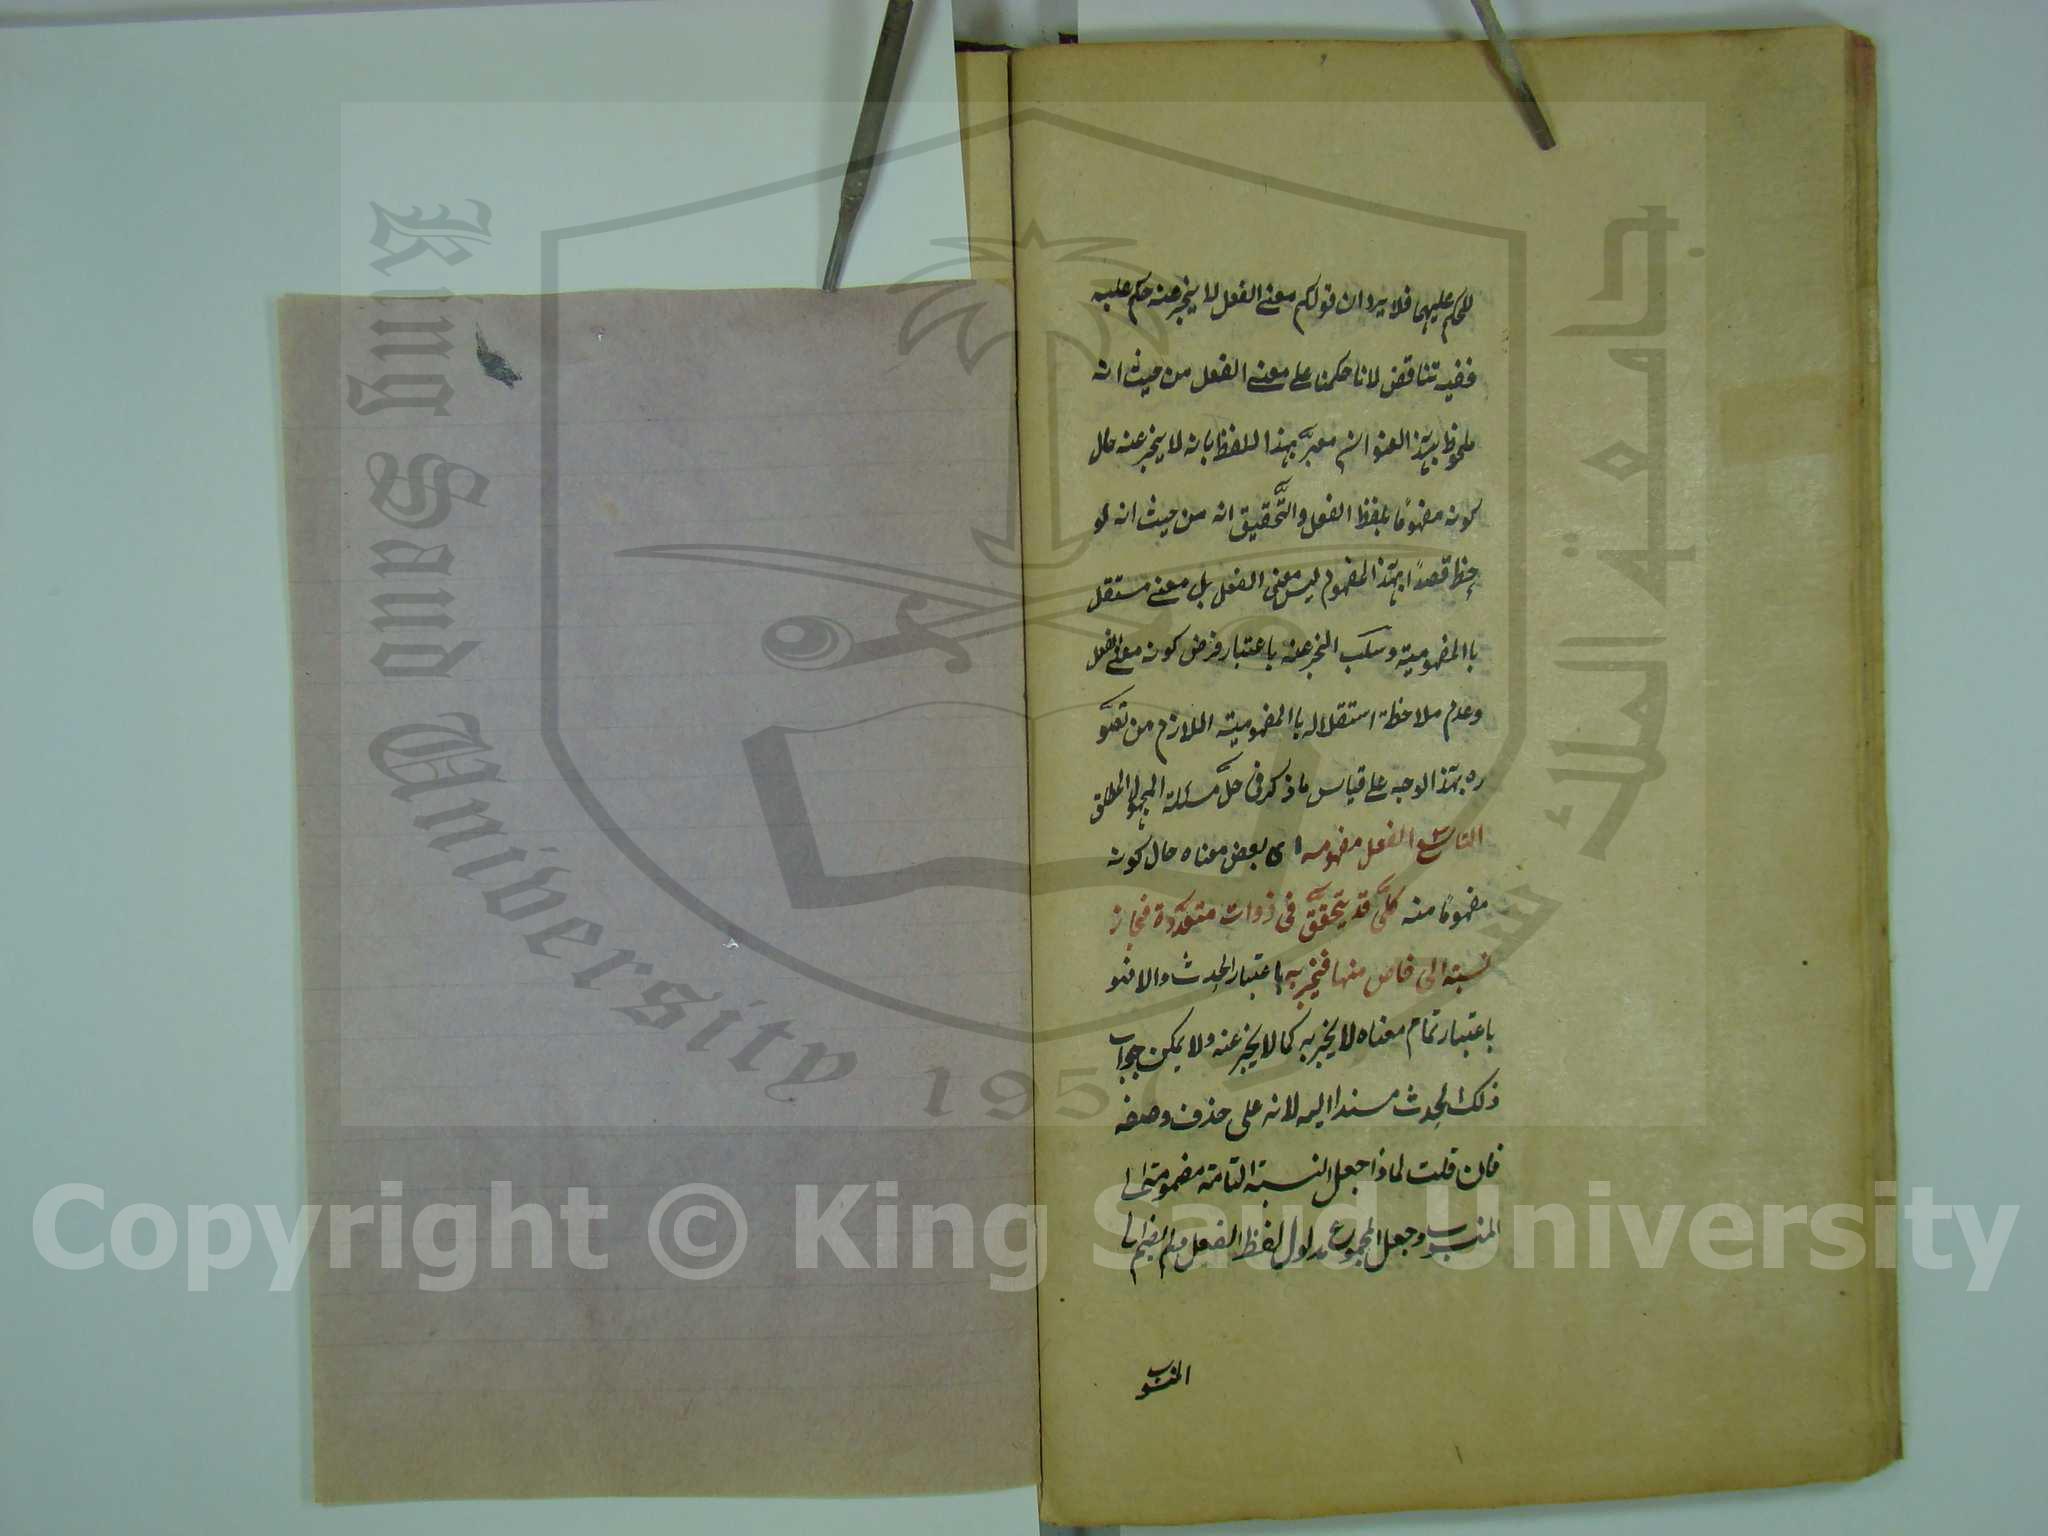 للحكم عليهما فلا يرد ان قولكم معنى الفعل لا يخبر عنه حكم عليه
ففيه تناقض لانا حكمنا على معنى الفعل من حيث انه
ملحوظ بهذا العنوان معبرّ بهذا اللفظ بانه لا يخبر عنه حال
كونه مفهومًا بلفظ الفعل والتَّحقيق انه من حيث انه لو
حظ قصدًا بهذا المفهوم ليس معنى الفعل بل معنى مستقل
باالمفهومية وسلب الخبر عنه باعتبار فرض كونه معنى الفعل
وعدم ملاحظة استقلاله باالمفهومية اللازم من تصوّ
ره بهذا الوجه على قياس ما ذكر فى حلّ مسئلة المجهول المطلق
التاسع الفعل مفهومه اى بعض معناه حال كونه
مفهومًا منه كلىّ قد يتحقَّق فى ذوات متعدّدة فجاز
نسبته الى خاص منها فيخبر به باعتبار الحدث والا فهو
باعتبار تمام معناه لا يخبر به كما لا يخبر عنه ولا يمكن
ذلك الحدث مسندا اليه لانه على حذف وصفه
فان قلت لماذا جعل النسبة التامة مضمومة الى
المنسوب وجعل المجموع مدلول لفظ الفعل
المنسوب
جامعة الملك سعود
King Saud University
1957
Copyright © King Saud University